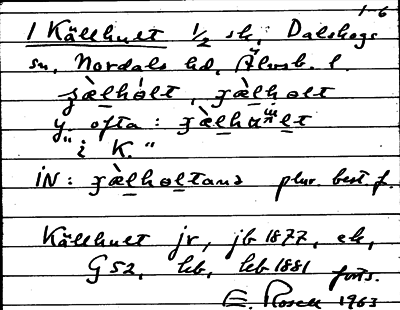 1-6
1 Källhult 1/2 sk, Dalskogs
sn, Nordals hd, Älvsb. l.
ʒæ̀lhólt, ʒæ̀lholt
y. ofta: ʒæ̀lhult
"i K."
iN: ʒæ̀lholtanə plur. best. f.
Källhult jr, jb 1877, ek,
G 52, hb, hb 1881 forts.
E. Rosell 1963